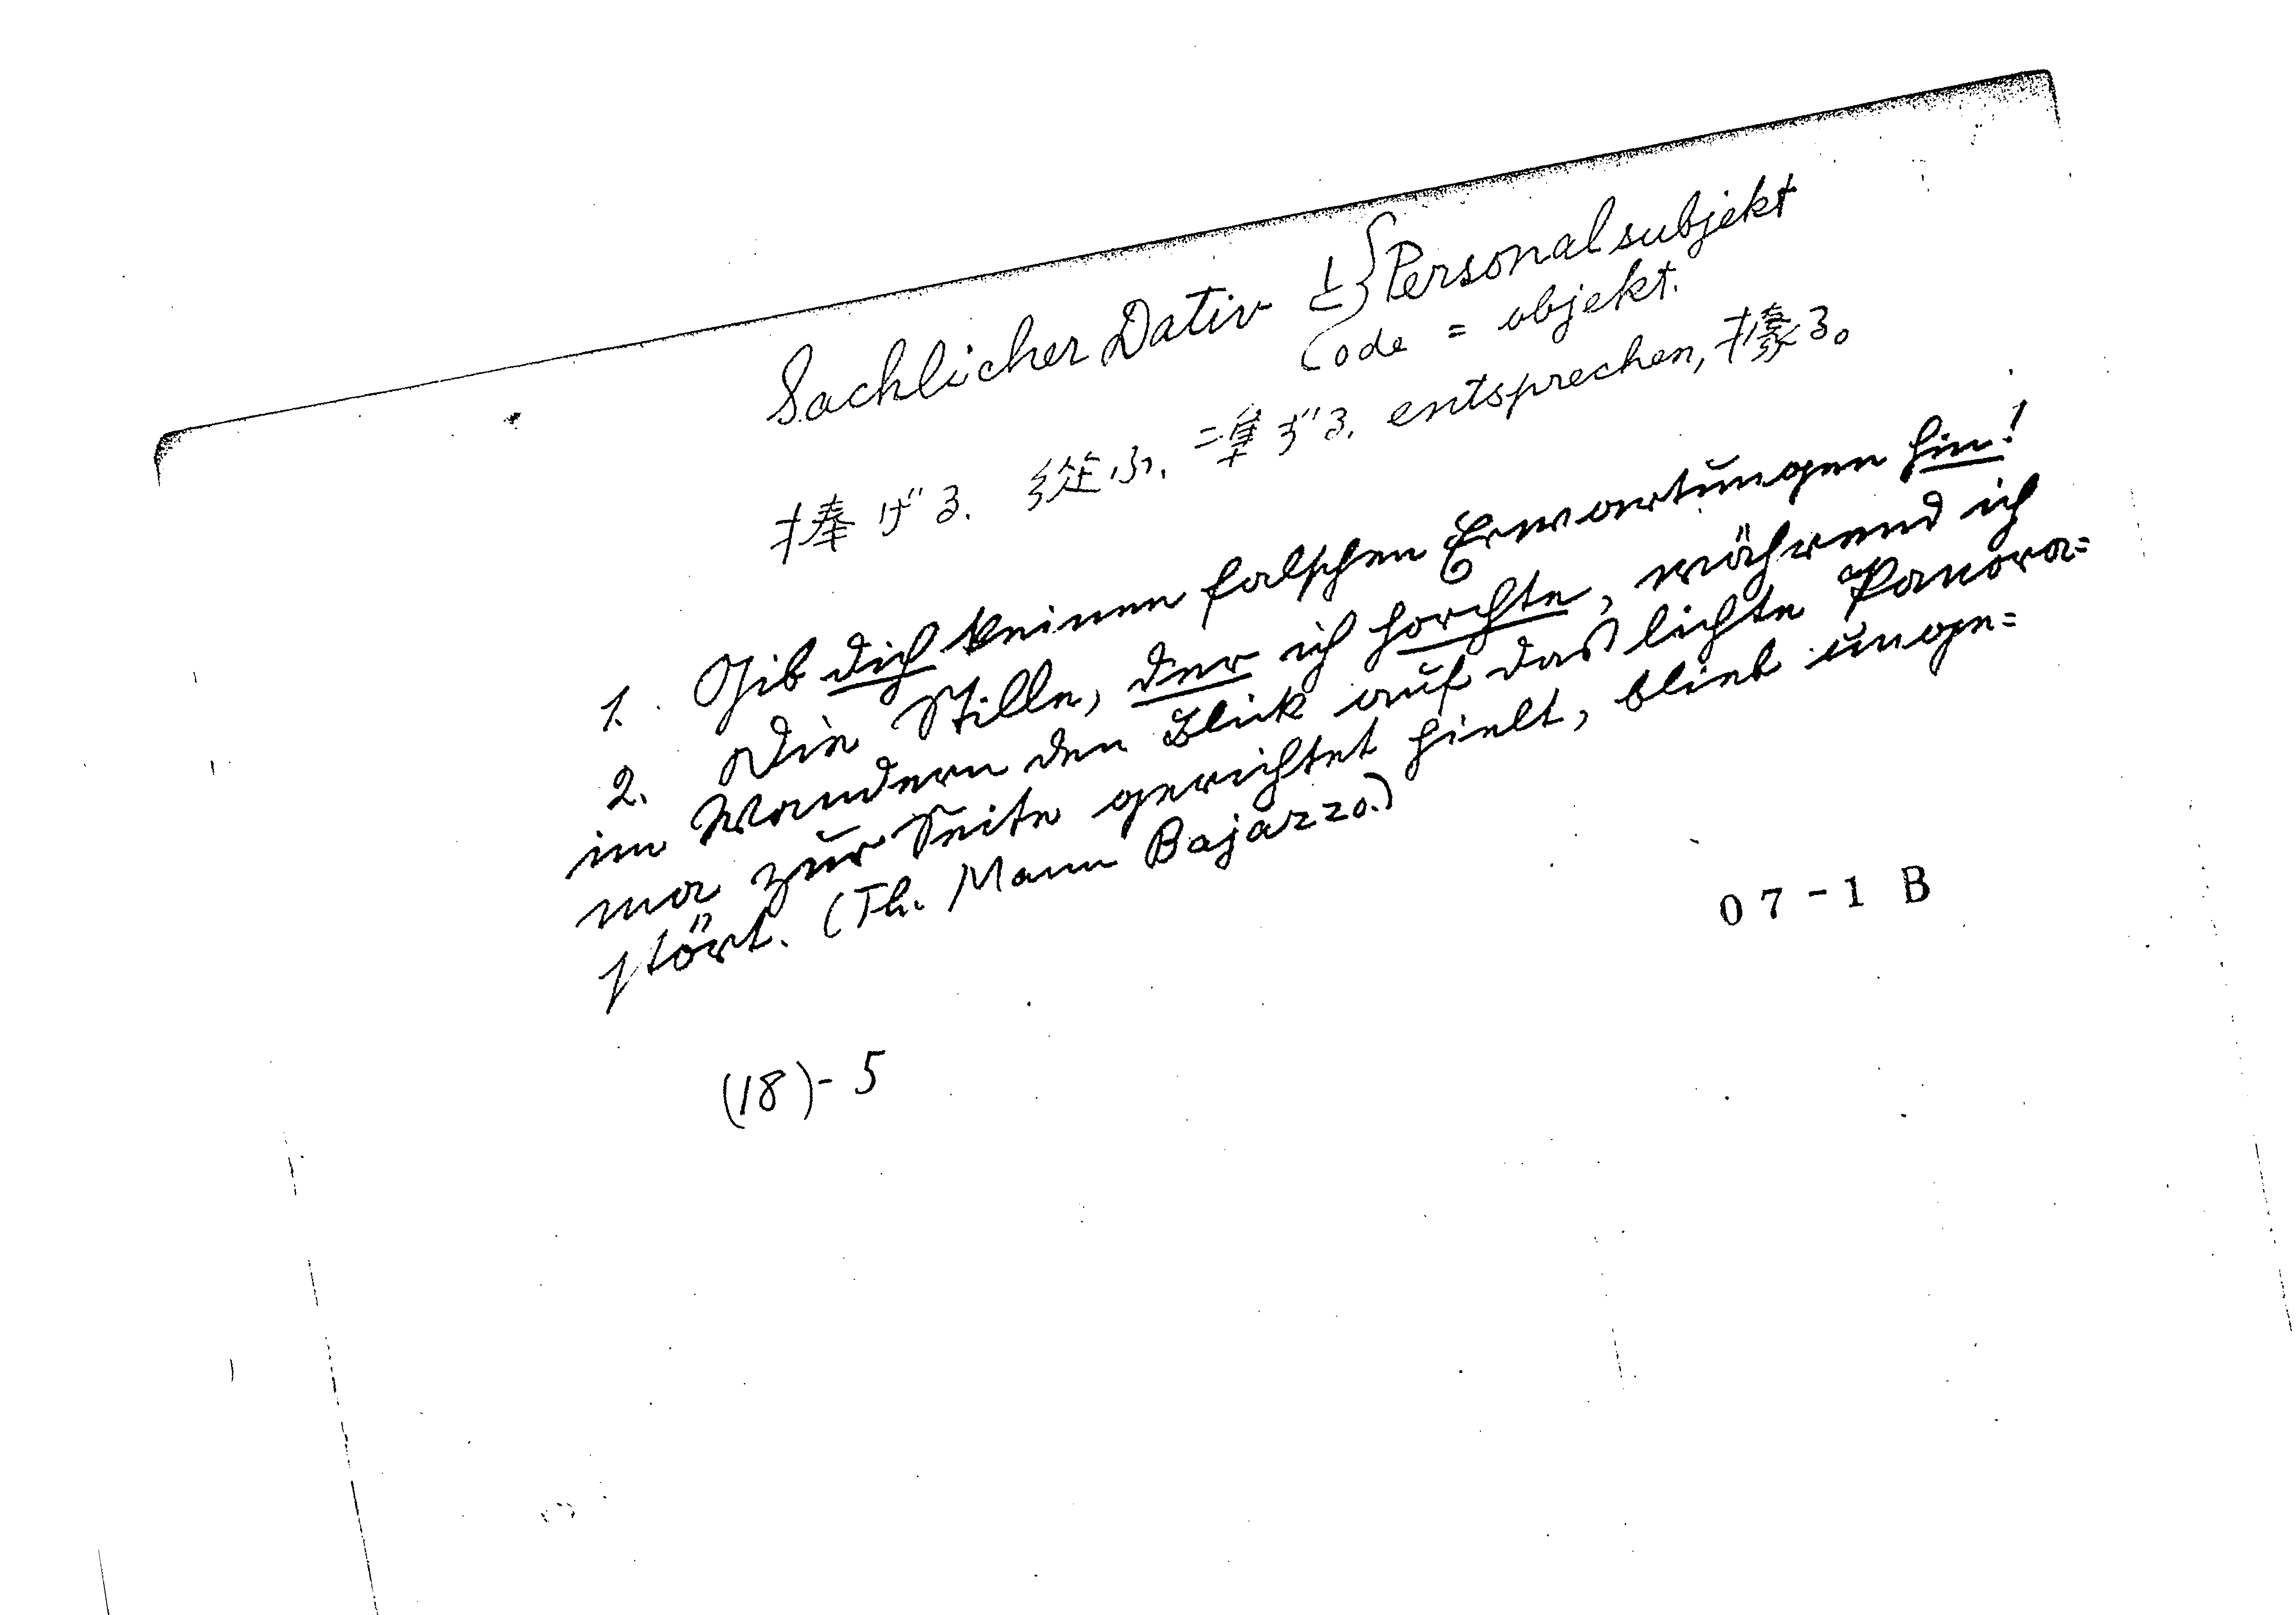 Sachlicher Dativ と{Personalsubjekt
ode = objekt.
捧げる. 從ふ. 準ずる. entsprechen, 據る。
1. Gib dich keinen falschen Erwartungen hin!
2. Die Stille, der ich horchte, während ich
im Wandern den Blick auf das lichte Panora=
ma zur Seite gerichtet hielt, blieb unge=
stört. (Th. Mann Bajazzo.)
07-1 B
(18)-5